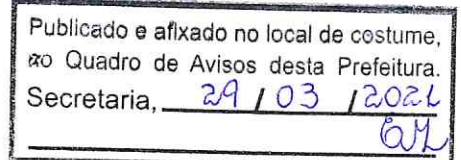 Publicado e afixado no local de costume,
ao Quadro de Avisos desta Prefeitura.
Secretaria, 29 / 03 / 2021